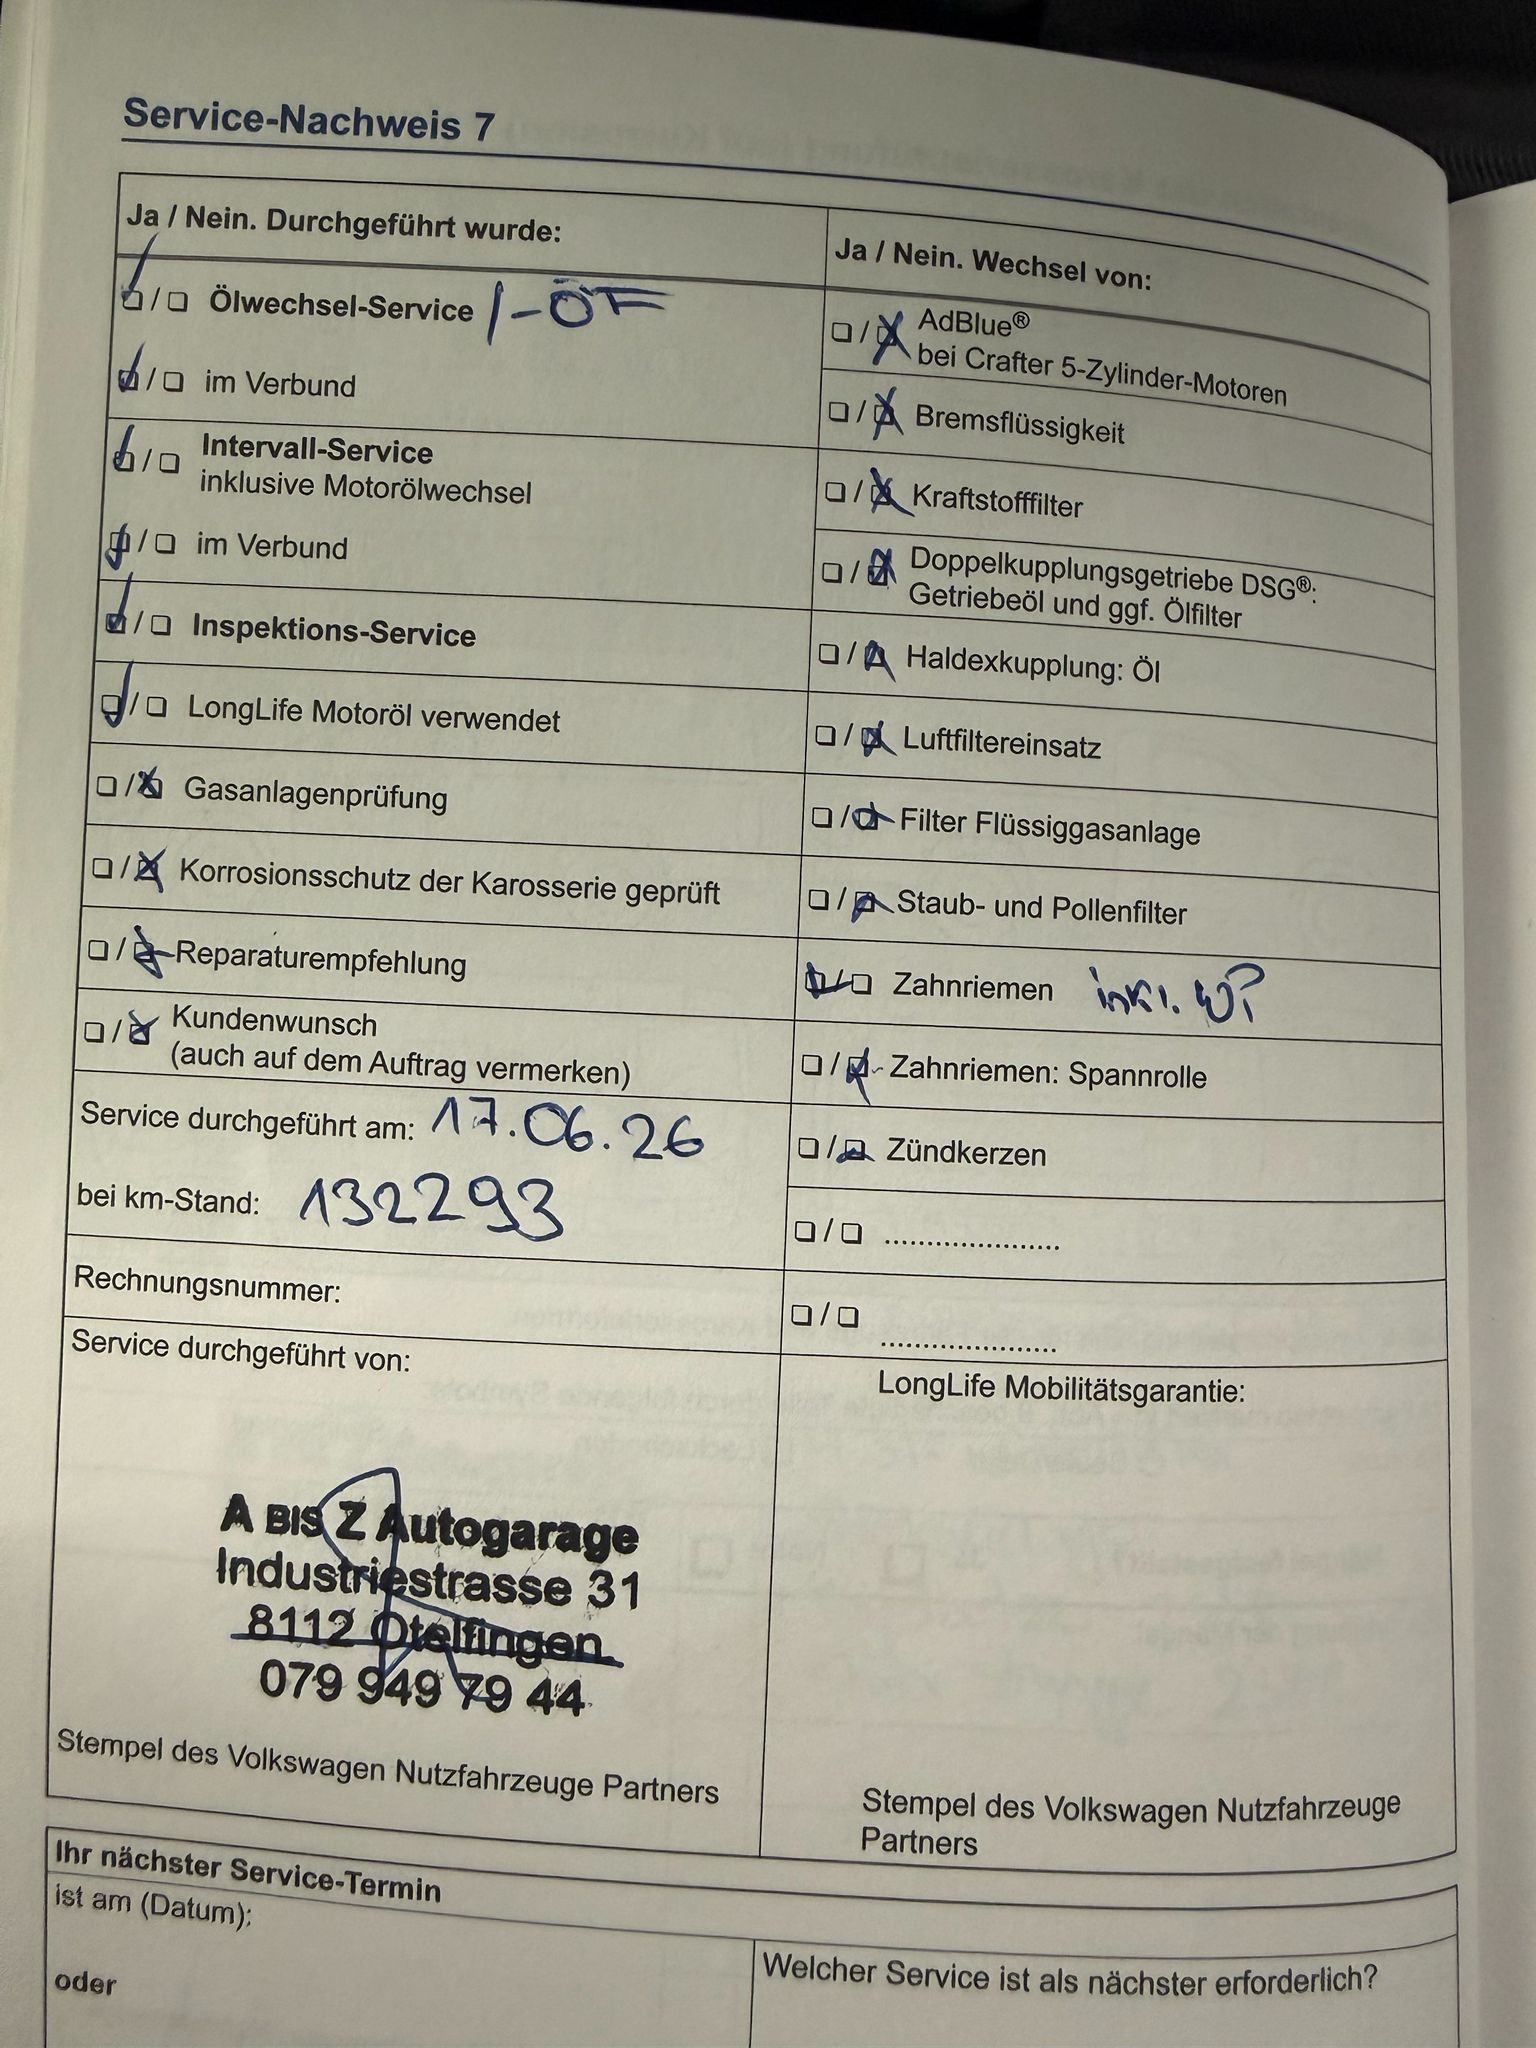 Service-Nachweis 7
Ja / Nein. Durchgeführt wurde:
☑ / ☐ Ölwechsel-Service /-ÖF
☑ / ☐ im Verbund
☑ / ☐ Intervall-Service
inklusive Motorölwechsel
☑ / ☐ im Verbund
☑ / ☐ Inspektions-Service
☑ / ☐ LongLife Motoröl verwendet
☐ / ☒ Gasanlagenprüfung
☐ / ☒ Korrosionsschutz der Karosserie geprüft
☐ / ☒ Reparaturempfehlung
☐ / ☒ Kundenwunsch
(auch auf dem Auftrag vermerken)
Service durchgeführt am: 17.06.26
bei km-Stand: 132293
Rechnungsnummer:
Service durchgeführt von:
A BIS Z Autogarage
Industriestrasse 31
8112 Otelfingen
079 949 79 44
Stempel des Volkswagen Nutzfahrzeuge Partners
Ja / Nein. Wechsel von:
☐ / ☒ AdBlue®
bei Crafter 5-Zylinder-Motoren
☐ / ☒ Bremsflüssigkeit
☐ / ☒ Kraftstofffilter
☐ / ☒ Doppelkupplungsgetriebe DSG®:
Getriebeöl und ggf. Ölfilter
☐ / ☒ Haldexkupplung: Öl
☐ / ☒ Luftfiltereinsatz
☐ / ☒ Filter Flüssiggasanlage
☐ / ☒ Staub- und Pollenfilter
☑ / ☐ Zahnriemen inkl. WP
☐ / ☒ Zahnriemen: Spannrolle
☐ / ☒ Zündkerzen
☐ / ☐ .....................
☐ / ☐ .....................
LongLife Mobilitätsgarantie:
Stempel des Volkswagen Nutzfahrzeuge
Partners
Ihr nächster Service-Termin
ist am (Datum):
oder
Welcher Service ist als nächster erforderlich?